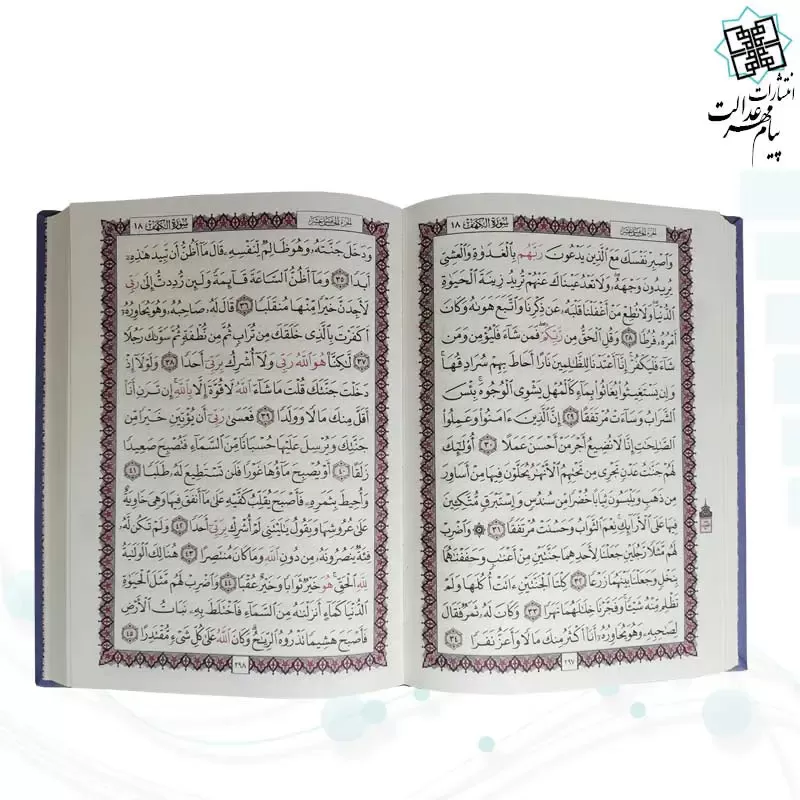 انتشارات
پیام مهر عدالت
سُورَةُ الكَهْفِ ١٨
وَاصْبِرْ نَفْسَكَ مَعَ الَّذِينَ يَدْعُونَ رَبَّهُم بِالْغَدَوٰةِ وَالْعَشِيِّ
يُرِيدُونَ وَجْهَهُۥ وَلَا تَعْدُ عَيْنَاكَ عَنْهُمْ تُرِيدُ زِينَةَ الْحَيَوٰةِ
الدُّنْيَا وَلَا تُطِعْ مَنْ أَغْفَلْنَا قَلْبَهُۥ عَن ذِكْرِنَا وَاتَّبَعَ هَوَىٰهُ وَكَانَ
أَمْرُهُۥ فُرُطًا ٢٨ وَقُلِ الْحَقُّ مِن رَّبِّكُمْ فَمَن شَآءَ فَلْيُؤْمِن وَمَن
شَآءَ فَلْيَكْفُرْ إِنَّآ أَعْتَدْنَا لِلظَّٰلِمِينَ نَارًا أَحَاطَ بِهِمْ سُرَادِقُهَا
وَإِن يَسْتَغِيثُوا۟ يُغَاثُوا۟ بِمَآءٍ كَالْمُهْلِ يَشْوِي الْوُجُوهَ بِئْسَ
الشَّرَابُ وَسَآءَتْ مُرْتَفَقًا ٢٩ إِنَّ الَّذِينَ ءَامَنُوا۟ وَعَمِلُوا۟
الصَّٰلِحَٰتِ إِنَّا لَا نُضِيعُ أَجْرَ مَنْ أَحْسَنَ عَمَلًا ٣٠ أُو۟لَٰٓئِكَ
لَهُمْ جَنَّٰتُ عَدْنٍ تَجْرِي مِن تَحْتِهِمُ الْأَنْهَٰرُ يُحَلَّوْنَ فِيهَا مِنْ أَسَاوِرَ
مِن ذَهَبٍ وَيَلْبَسُونَ ثِيَابًا خُضْرًا مِّن سُندُسٍ وَإِسْتَبْرَقٍ مُّتَّكِـِٔينَ
فِيهَا عَلَى الْأَرَآئِكِ نِعْمَ الثَّوَابُ وَحَسُنَتْ مُرْتَفَقًا ٣١ وَاضْرِبْ
لَهُم مَّثَلًا رَّجُلَيْنِ جَعَلْنَا لِأَحَدِهِمَا جَنَّتَيْنِ مِنْ أَعْنَٰبٍ وَحَفَفْنَٰهُمَا
بِنَخْلٍ وَجَعَلْنَا بَيْنَهُمَا زَرْعًا ٣٢ كِلْتَا الْجَنَّتَيْنِ ءَاتَتْ أُكُلَهَا وَلَمْ
تَظْلِم مِّنْهُ شَيْـًٔا وَفَجَّرْنَا خِلَٰلَهُمَا نَهَرًا ٣٣ وَكَانَ لَهُۥ ثَمَرٌ فَقَالَ
لِصَٰحِبِهِۦ وَهُوَ يُحَاوِرُهُۥٓ أَنَا۠ أَكْثَرُ مِنكَ مَالًا وَأَعَزُّ نَفَرًا ٣٤
٢٩٧
سُورَةُ الكَهْفِ ١٨
وَدَخَلَ جَنَّتَهُۥ وَهُوَ ظَالِمٌ لِّنَفْسِهِۦ قَالَ مَآ أَظُنُّ أَن تَبِيدَ هَٰذِهِۦٓ
أَبَدًا ٣٥ وَمَآ أَظُنُّ السَّاعَةَ قَآئِمَةً وَلَئِن رُّدِدتُّ إِلَىٰ رَبِّي
لَأَجِدَنَّ خَيْرًا مِّنْهَا مُنقَلَبًا ٣٦ قَالَ لَهُۥ صَاحِبُهُۥ وَهُوَ يُحَاوِرُهُۥٓ
أَكَفَرْتَ بِالَّذِي خَلَقَكَ مِن تُرَابٍ ثُمَّ مِن نُّطْفَةٍ ثُمَّ سَوَّىٰكَ رَجُلًا
٣٧ لَّٰكِنَّا۠ هُوَ اللَّهُ رَبِّي وَلَآ أُشْرِكُ بِرَبِّيٓ أَحَدًا ٣٨ وَلَوْلَآ إِذْ
دَخَلْتَ جَنَّتَكَ قُلْتَ مَا شَآءَ اللَّهُ لَا قُوَّةَ إِلَّا بِاللَّهِ إِن تَرَنِ أَنَا۠
أَقَلَّ مِنكَ مَالًا وَوَلَدًا ٣٩ فَعَسَىٰ رَبِّيٓ أَن يُؤْتِيَنِ خَيْرًا مِّن
جَنَّتِكَ وَيُرْسِلَ عَلَيْهَا حُسْبَانًا مِّنَ السَّمَآءِ فَتُصْبِحَ صَعِيدًا
زَلَقًا ٤٠ أَوْ يُصْبِحَ مَآؤُهَا غَوْرًا فَلَن تَسْتَطِيعَ لَهُۥ طَلَبًا ٤١
وَأُحِيطَ بِثَمَرِهِۦ فَأَصْبَحَ يُقَلِّبُ كَفَّيْهِ عَلَىٰ مَآ أَنفَقَ فِيهَا وَهِيَ خَاوِيَةٌ
عَلَىٰ عُرُوشِهَا وَيَقُولُ يَٰلَيْتَنِي لَمْ أُشْرِكْ بِرَبِّيٓ أَحَدًا ٤٢ وَلَمْ تَكُن لَّهُۥ
فِئَةٌ يَنصُرُونَهُۥ مِن دُونِ اللَّهِ وَمَا كَانَ مُنتَصِرًا ٤٣ هُنَالِكَ الْوَلَٰيَةُ
لِلَّهِ الْحَقِّ هُوَ خَيْرٌ ثَوَابًا وَخَيْرٌ عُقْبًا ٤٤ وَاضْرِبْ لَهُم مَّثَلَ الْحَيَوٰةِ
الدُّنْيَا كَمَآءٍ أَنزَلْنَٰهُ مِنَ السَّمَآءِ فَاخْتَلَطَ بِهِۦ نَبَاتُ الْأَرْضِ
فَأَصْبَحَ هَشِيمًا تَذْرُوهُ الرِّيَٰحُ وَكَانَ اللَّهُ عَلَىٰ كُلِّ شَيْءٍ مُّقْتَدِرًا ٤٥
٢٩٨